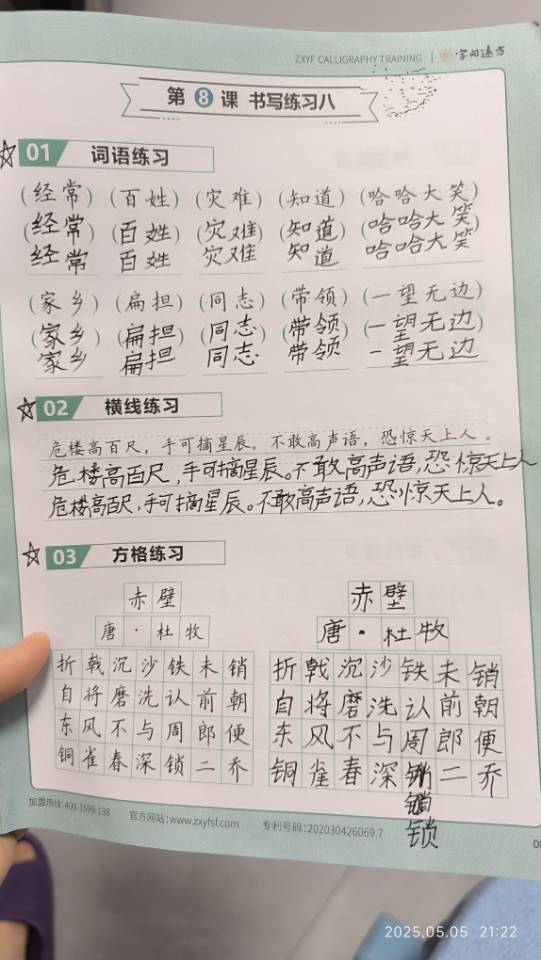 ZXYF CALLIGRAPHY TRAINING | 字有道方
第 8 课 书写练习八
01 词语练习
(经常) (百姓) (灾难) (知道) (哈哈大笑)
(经常) (百姓) (灾难) (知道) (哈哈大笑)
经常 百姓 灾难 知道 哈哈大笑
(家乡) (扁担) (同志) (带领) (一望无边)
(家乡) (扁担) (同志) (带领) (一望无边)
家乡 扁担 同志 带领 一望无边
02 横线练习
危楼高百尺，手可摘星辰。不敢高声语，恐惊天上人。
危楼高百尺，手可摘星辰。不敢高声语，恐惊天上人
危楼高百尺，手可摘星辰。不敢高声语，恐惊天上人。
03 方格练习
赤壁 赤壁
唐·杜牧 唐·杜牧
折戟沉沙铁未销 折戟沉沙铁未销
自将磨洗认前朝 自将磨洗认前朝
东风不与周郎便 东风不与周郎便
铜雀春深锁二乔 铜雀春深二乔
锁
加盟热线:400-1699-138 官方网站:www.zxyfsf.com 专利号码:202030426069.7
2025.05.05 21:22